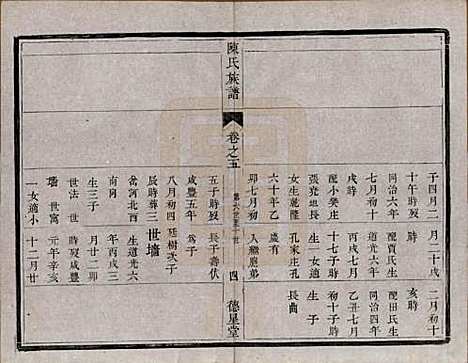 子四月二　二月初十
十午時　月二十戌　亥時
同治六年　配賈氏生　配田氏生
七月初十　道光六年　同治四年
戌時　丙戌七月　乙丑七月
配小婁庄　十七子時　初十子時
張堯坦長　生一女適　生子
女生乾隆　孔家庄孔　長
六十年乙　歲有
卯七月初　入繼應弟
陳氏族譜　卷之五　四　德星堂
五子時歿　長子壽伏
咸豐五年　爲子
八月初四　廷樹次子
辰時葬三　世墻
河北西　生道光六
南向　年丙戌三
生三子　月廿二卯
世法　世　時歿咸豐
墻　世寓　元年辛亥
一女適小　十二月廿